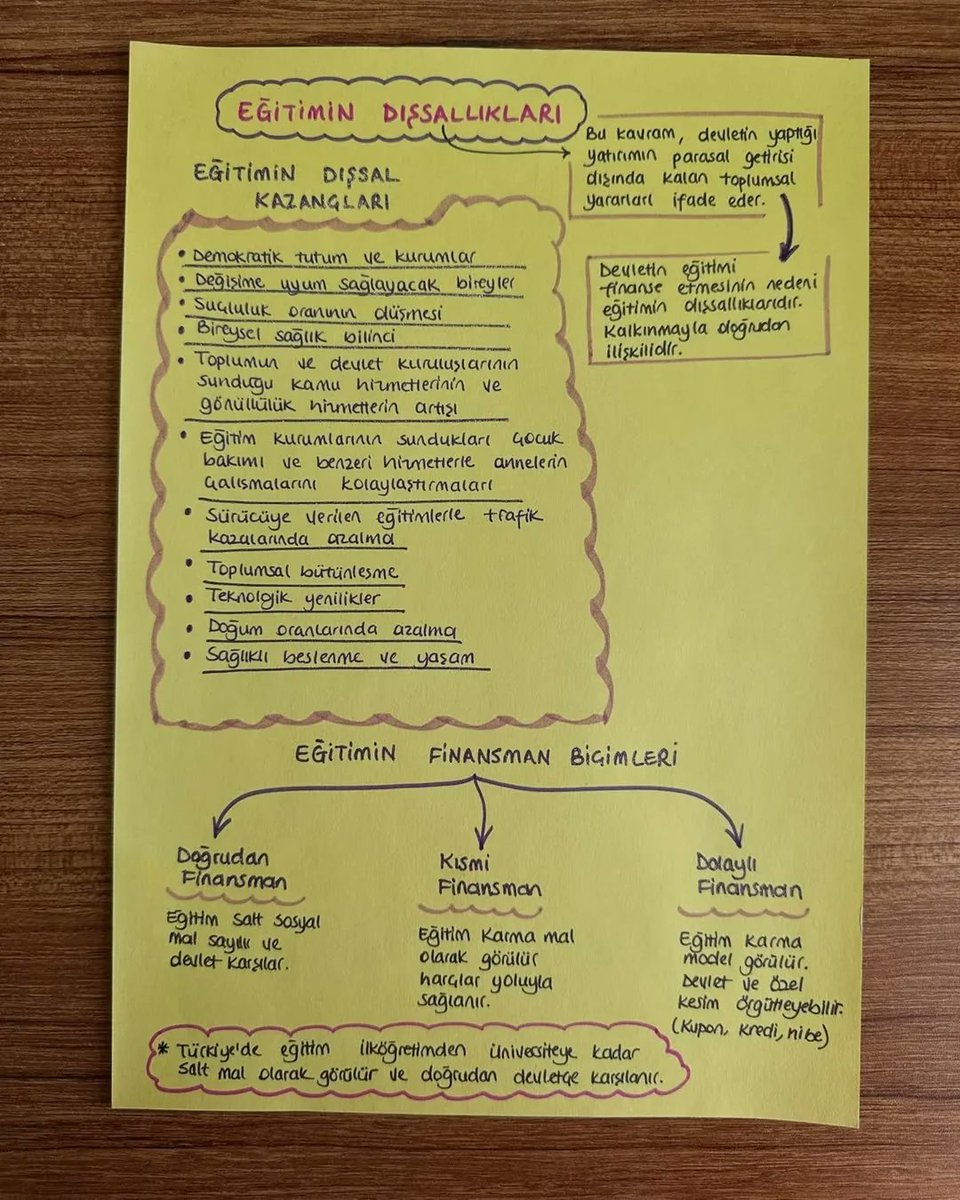 EĞİTİMİN DIŞSALLIKLARI
Bu kavram, devletin yaptığı
yatırımın parasal getirisi
dışında kalan toplumsal
yararları ifade eder.
Devletin eğitimi
finanse etmesinin nedeni
eğitimin dışsallıklarıdır.
Kalkınmayla doğrudan
ilişkilidir.
EĞİTİMİN DIŞSAL
KAZANÇLARI
• Demokratik tutum ve kurumlar
• Değişime uyum sağlayacak bireyler
• Suçluluk oranının düşmesi
• Bireysel sağlık bilinci
• Toplumun ve devlet kuruluşlarının
sunduğu kamu hizmetlerinin ve
gönüllülük hizmetlerin artışı
• Eğitim kurumlarının sundukları çocuk
bakımı ve benzeri hizmetlerle annelerin
çalışmalarını kolaylaştırmaları
• Sürücüye verilen eğitimlerle trafik
kazalarında azalma
• Toplumsal bütünleşme
• Teknolojik yenilikler
• Doğum oranlarında azalma
• Sağlıklı beslenme ve yaşam
EĞİTİMİN FİNANSMAN BİÇİMLERİ
Doğrudan
Finansman
Eğitim salt sosyal
mal sayılır ve
devlet karşılar.
Kısmi
Finansman
Eğitim karma mal
olarak görülür
harçlar yoluyla
sağlanır.
Dolaylı
Finansman
Eğitim karma
model görülür.
Devlet ve özel
kesim örgütleyebilir.
(Kupon, kredi, hibe)
* Türkiye'de eğitim ilköğretimden üniversiteye kadar
salt mal olarak görülür ve doğrudan devletçe karşılanır.